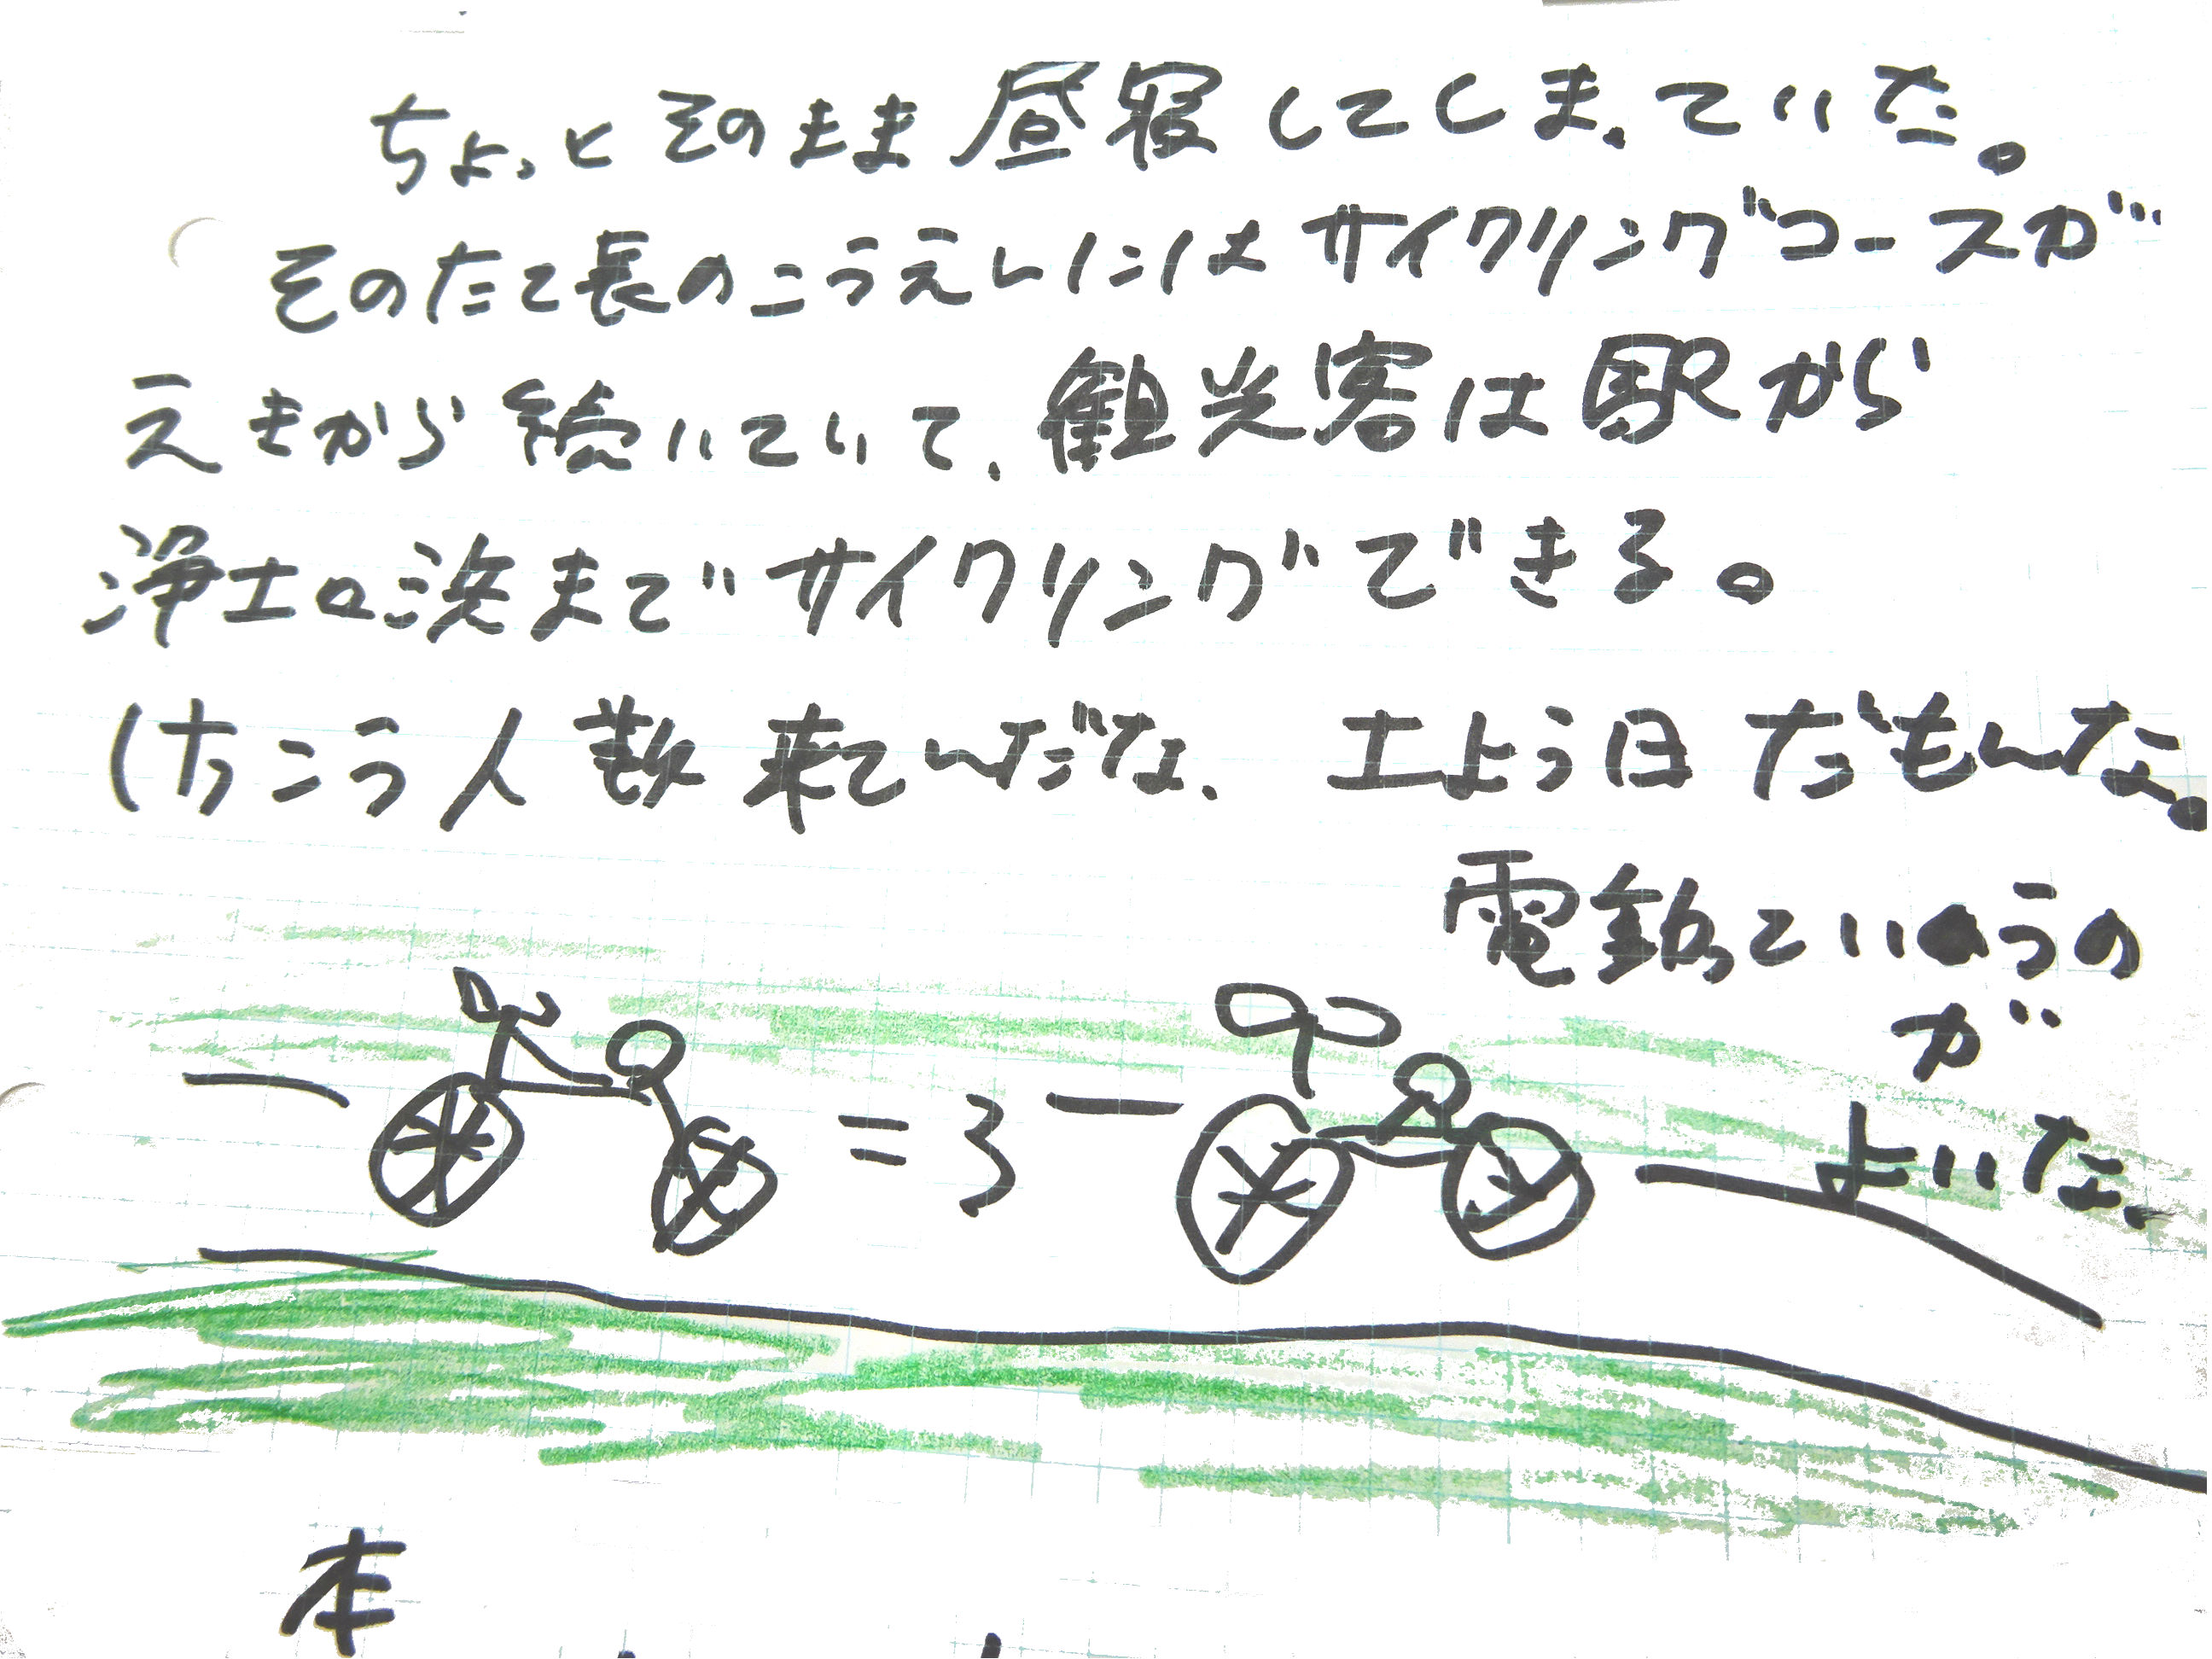 ちょっとそのまま昼寝してしまっていた。
そのたて長のこうえんにはサイクリングコースが
えきから続いていて、観光客は駅から
浄土ヶ浜までサイクリングできる。
けっこう人数来てんだな、土よう日だもんな。
電鈴ていうの
が
よいた、
本